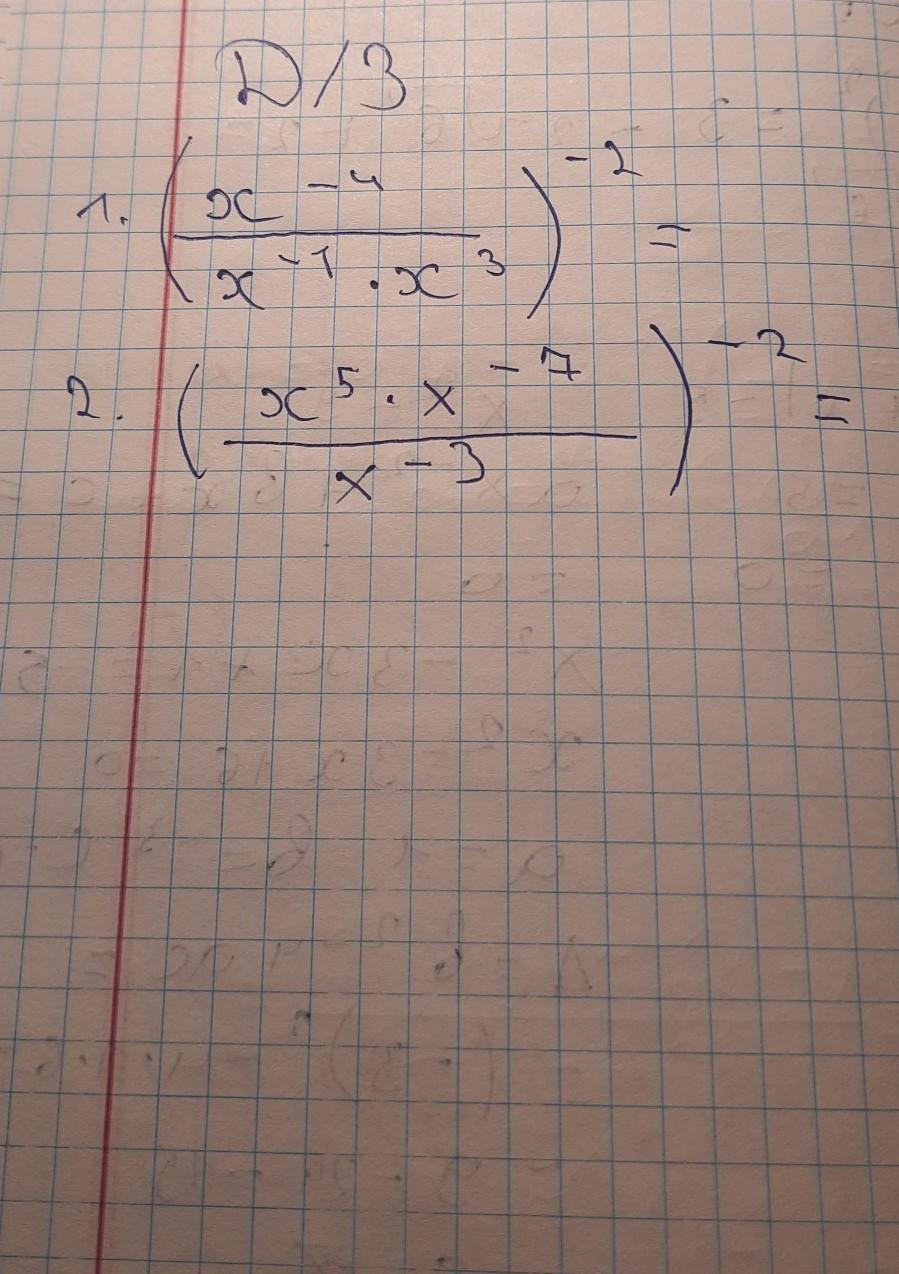 D/З
1. (x^-4 / (x^-1 · x^3))^-2 =
2. ((x^5 · x^-7) / x^-3)^-2 =